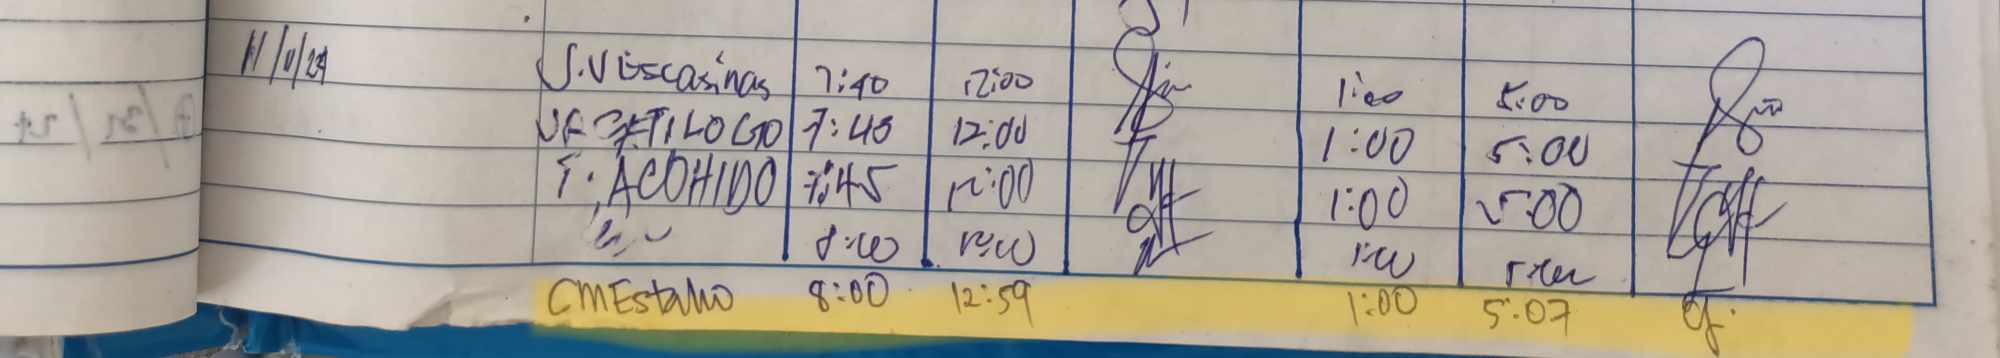 11/11/24 J.V Escasinas 7:40 12:00 1:00 5:00
7:45 12:00 1:00 5:00
F. ACOHIDO 7:45 12:00 1:00 5:00
8:00 12:00 1:00 5:00
CMEstaño 8:00 12:59 1:00 5:07